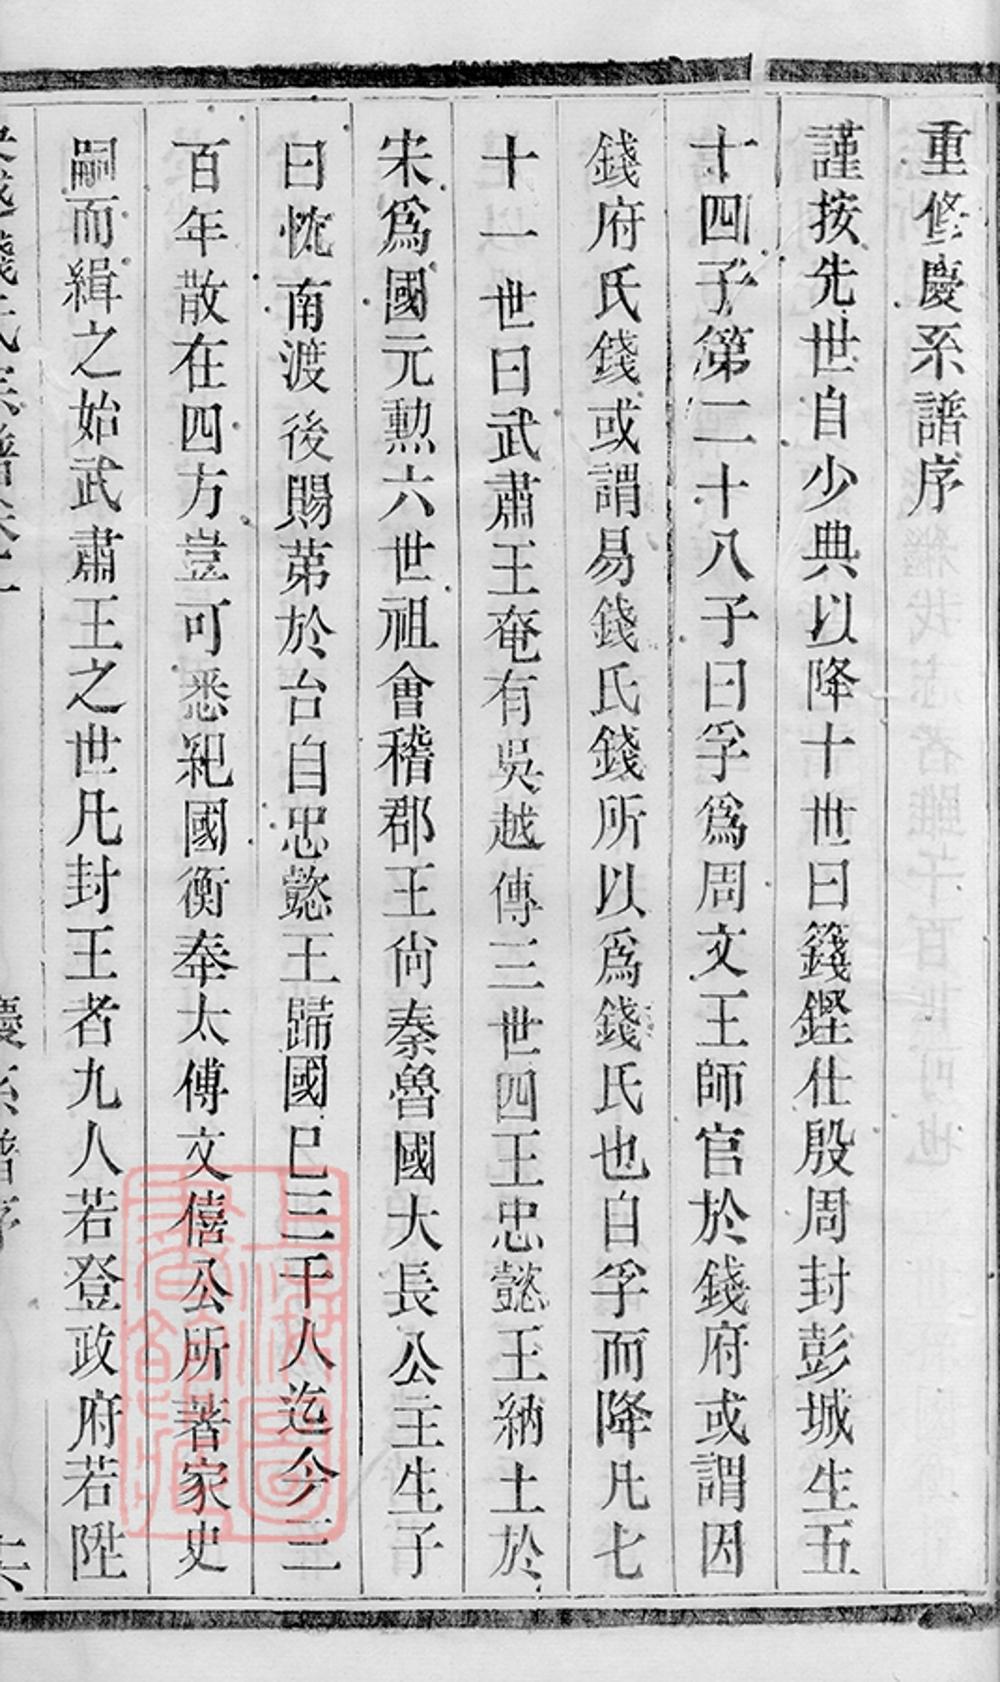 重修慶系譜序
謹按先世自少典以降十世曰籛鏗仕殷周封彭城生五
十四子第二十八子曰孚爲周文王師官於錢府或謂因
錢府氏錢或謂易籛氏錢所以爲錢氏也自孚而降凡七
十一世曰武肅王奄有吳越傳三世四王忠懿王納土於
宋爲國元勲六世祖會稽郡王尙秦魯國大長公主生子
曰忱南渡後賜苐於台自忠懿王歸國已三千人迄今三
百年散在四方豈可悉紀國衡奉太傅文僖公所著家史
嗣而緝之始武肅王之世凡封王者九人若登政府若陞
慶系譜序
十六
上海圖書館藏